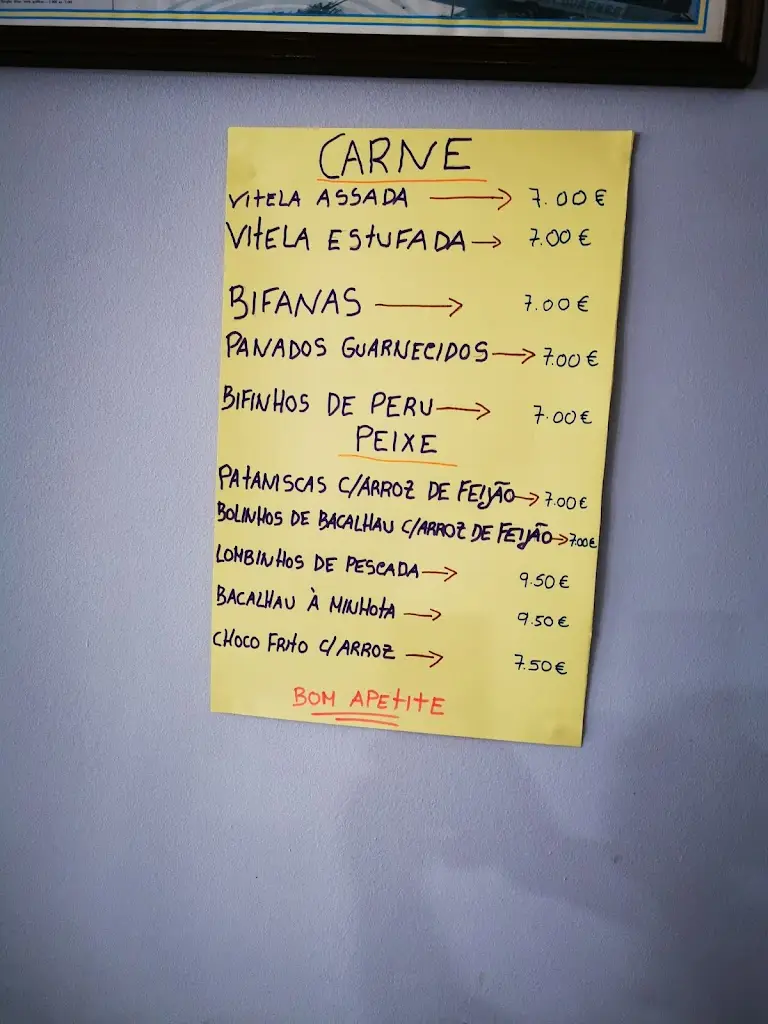 CARNE
VITELA ASSADA → 7.00 €
VITELA ESTUFADA → 7.00 €
BIFANAS → 7.00 €
PANADOS GUARNECIDOS → 7.00 €
BIFINHOS DE PERU → 7.00 €
PEIXE
PATANISCAS C/ARROZ DE FEIJÃO → 7.00 €
BOLINHOS DE BACALHAU C/ARROZ DE FEIJÃO → 7.00 €
LOMBINHOS DE PESCADA → 9.50 €
BACALHAU À MINHOTA → 9.50 €
CHOCO FRITO C/ARROZ → 7.50 €
BOM APETITE